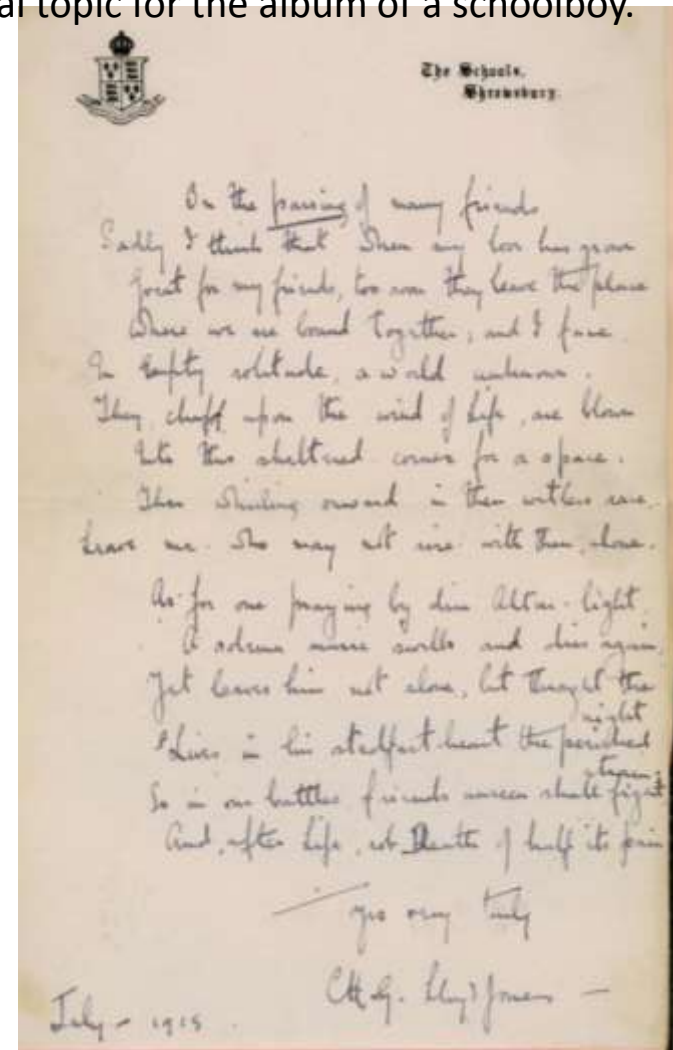 al topic for the album of a schoolboy.
The Schools,
Shrewsbury.
On the passing of many friends
Sadly I think that when my love has grown
Great for my friends, too soon they leave the place
Where we are bound together, and I face
In empty solitude, a world unknown.
They, chaff upon the wind of life, are blown
Into this sheltered corner for a space.
Then whirling onward in their witless race,
Leave me who may not with them, alone.
As for one praying by dim Altar-light
A solemn music swells and dies again,
Yet leaves him not alone, but through the
night
Lives in his stedfast heart the perished
So in our battles friends unseen shall fight
And, after Life, rob Death of half its pain
Yrs very truly
Lloyd Jones -
July - 1915.